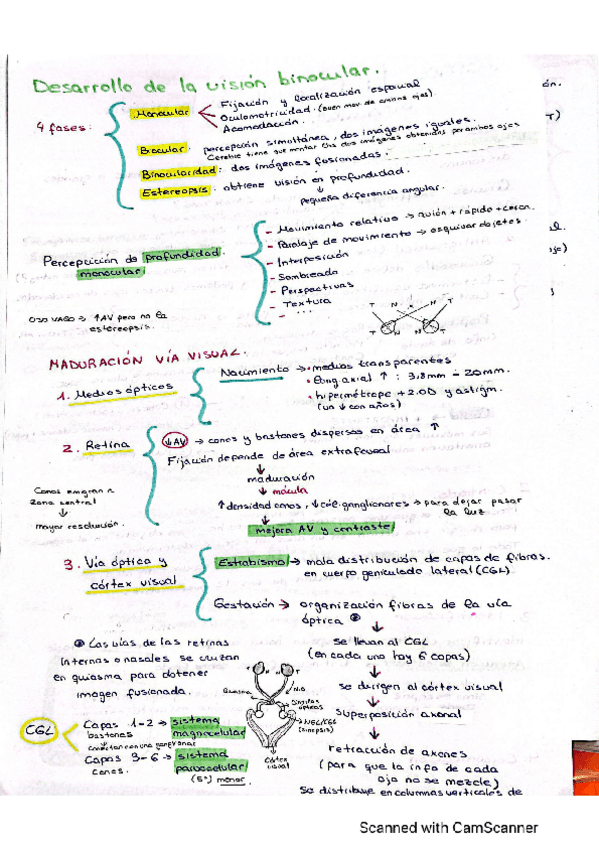 Desarrollo de la visión binocular.
4 fases:
Monocular
Fijación y localización espacial
Oculomotricidad. (buen mov. de ambos ojos)
Acomodación.
Biocular: percepción simultánea, dos imágenes iguales.
Cerebro tiene que montar las dos imágenes obtenidas por ambos ojos
Binocularidad: dos imágenes fusionadas.
Estereopsis: obtiene visión en profundidad.
pequeña diferencia angular.
Percepción de profundidad
monocular:
- Movimiento relativo → avión + rápido + cercan.
- Paralaje de movimiento → esquivar objetos.
- Interposición
- Sombreado
- Perspectivas
- Textura
- ...
OJO VAGO → ↑AV pero no la
estereopsis.
T N N T
MADURACIÓN VÍA VISUAL.
1. Medios ópticos
Nacimiento → • medios transparentes
• long axial ↑ : 3,8mm - 20mm.
• hipermétrope +2.0D y astigm.
(un ↓ con años)
2. Retina
↓AV → conos y bastones dispersos en área ↑
Fijación depende de área extrafoveal
maduración
mácula
↑ densidad conos, ↓ cél. ganglionares → para dejar pasar
la luz
mejora AV y contraste
Conos emigran a
zona central
mayor resolución.
3. Vía óptica y
córtex visual
Estrabismo → mala distribución de capas de fibras.
en cuerpo geniculado lateral (CGL)
Gestación → organización fibras de la vía
óptica
se llevan al CGL
(en cada uno hay 6 capas)
se dirigen al córtex visual
superposición axonal
retracción de axones
(para que la info de cada
ojo no se mezcle)
Se distribuye en columnas verticales de
Las vías de las retinas
internas o nasales se cruzan
en quiasma para obtener
imagen fusionada.
T N N T
Quiasma
N.O
Cintillas
ópticas
NGL/CGL
(sinapsis)
Córtex
visual
CGL
Capas 1-2 → sistema
bastones magnocelular
Capas 3-6 → sistema
conos. parvocelular
(5º) menor.
Scanned with CamScanner